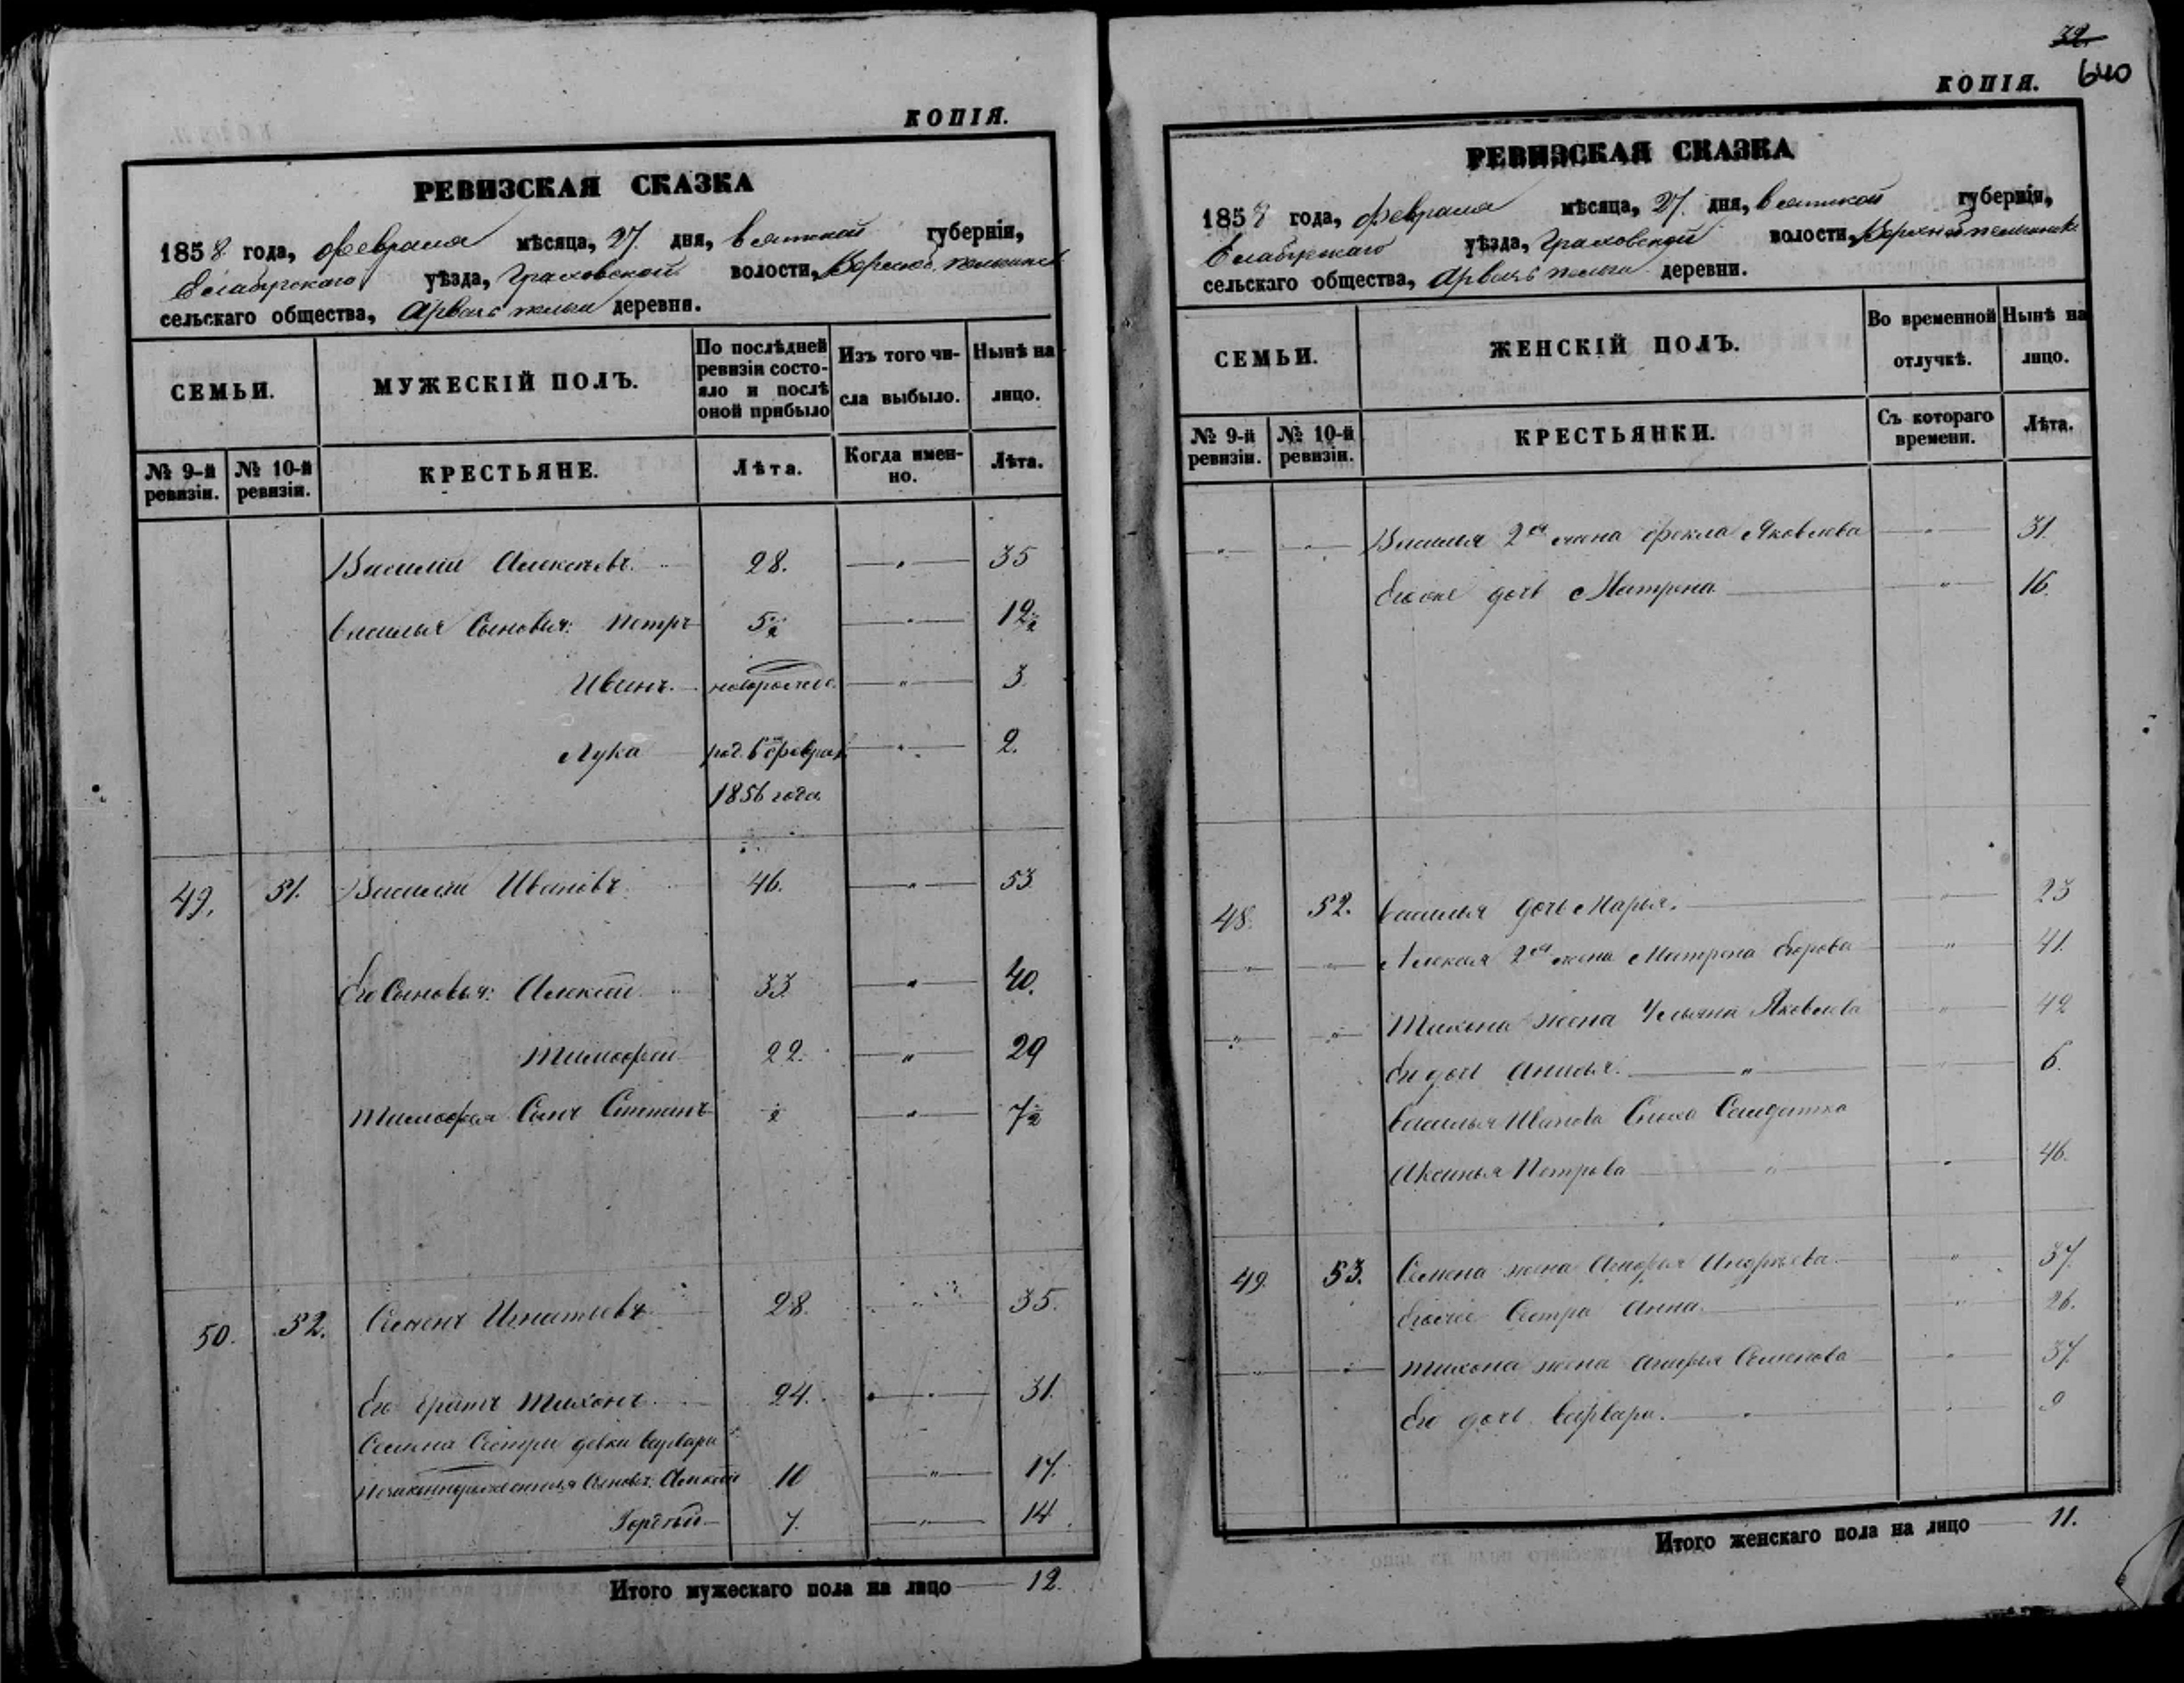 КОПІЯ.
РЕВИЗСКАЯ СКАЗКА
1858 года, февраля мѣсяца, 27 дня, Вятской губерніи,
Елабужскаго уѣзда, Граховской волости,
сельскаго общества, деревни.
СЕМЬИ.
МУЖЕСКІЙ ПОЛЪ.
По послѣдней ревизіи состояло и послѣ оной прибыло
Изъ того числа выбыло.
Нынѣ на лицо.
№ 9-й ревизіи.
№ 10-й ревизіи.
КРЕСТЬЯНЕ.
Лѣта.
Когда именно.
Лѣта.
Василій Алексѣевъ 28. „ 35
Василья Сыновья: Петръ 5½ „ 12½
Иванъ новорожде „ 3
Лука род. 6 феврал „ 2.
1856 года
49. 51. Василій Ивановъ 46. „ 53
Его Сыновья: Алексѣй 33 „ 40.
Тимофей 22. „ 29
Тимофея Сынъ Степанъ ½ „ 7½
50. 52. Семенъ Игнатьевъ 28. „ 35.
Его братъ Тихонъ 24. „ 31.
Семена Сестры девки Варвары
Сыновья: Алексѣй 10 „ 17.
7. „ 14
Итого мужескаго пола на лицо 12.
32.
640
КОПІЯ.
РЕВИЗСКАЯ СКАЗКА
1858 года, февраля мѣсяца, 27 дня, Вятской губерніи,
Елабужскаго уѣзда, Граховской волости,
сельскаго общества, деревни.
СЕМЬИ.
ЖЕНСКІЙ ПОЛЪ.
Во временной отлучкѣ.
Нынѣ на лицо.
№ 9-й ревизіи.
№ 10-й ревизіи.
КРЕСТЬЯНКИ.
Съ котораго времени.
Лѣта.
„ „ Василья 2я жена Фекла Яковлева „ 31.
Его же дочь Матрена „ 16.
48. 52. Василья дочь Марья. „ 23
„ „ Алексея 2я жена Матрена Егорова „ 41.
„ „ Тихона жена Ульяна Яковлева „ 42
Ея дочь „ 6.
Василья Иванова Сноха Солдатка
Аксинья Петрова „ 46.
49. 53. Семена жена Агафья Андреева „ 37.
Его же Сестра Анна „ 26.
„ „ Тихона жена Агафья Семенова „ 37.
Его дочь Варвара. „ 9
Итого женскаго пола на лицо 11.